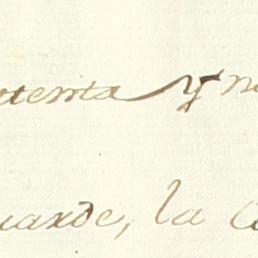 tenta y n
uarde, la C